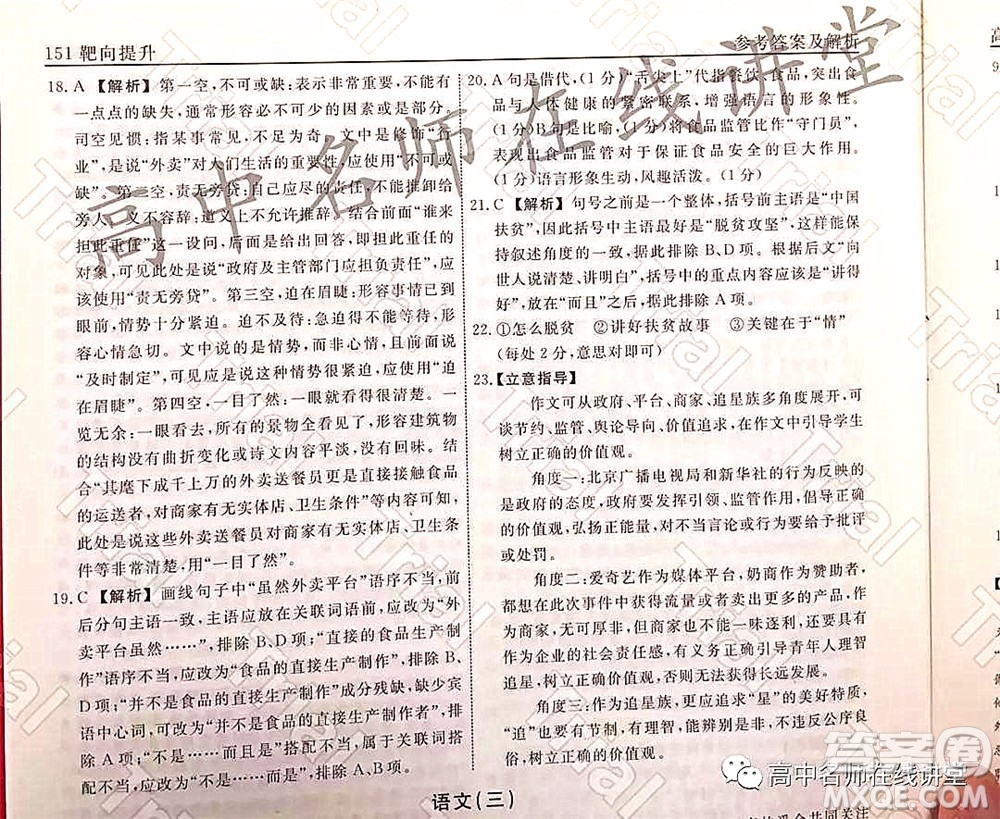 151靶向提升
参考答案及解析
18. A 【解析】第一空,不可或缺:表示非常重要,不能有
一点点的缺失,通常形容必不可少的因素或是部分。
司空见惯:指某事常见,不足为奇。文中是修饰“行
业”,是说“外卖”对人们生活的重要性,应使用“不可或
缺”。第二空,责无旁贷:自己应尽的责任,不能推卸给
旁人。义不容辞:道义上不允许推辞。结合前面“谁来
担此重任”这一设问,后面应该回答出担此重任的
对象,可见此处是说“政府及主管部门应担负责任”,应
该使用“责无旁贷”。第三空,迫在眉睫:形容事情已到
眼前,情势十分紧迫。迫不及待:急迫得不能再等待,
形容心情急切。文中说的是情势,而非心情,后面又说
“及时制定”,可见这里应该是形容情势紧急,应使用“迫
在眉睫”。第四空,一目了然:一眼就看得很清楚。一
览无余:一眼看去,所有的景物全看见了,形容建筑物
的结构没有曲折变化或诗文内容平淡,没有回味。结
合“其麾下成千上万的外卖送餐员更是商家有
无实体店、卫生条件”等内容可知,外卖送餐员作为商品
的运送者,对商家有无实体店、卫生条件等很清楚,
此处是说这些外卖送餐员对商家有无实体店、卫生条件
等非常清楚,应使用“一目了然”。
19. C 【解析】画线句子中“虽然外卖平台”语序不当,前
后分句主语一致,主语应放在关联词语前,应改为“外
卖平台虽然……”,排除B、D项;“直接的食品生产制
作”语序不当,应改为“食品的直接生产制作”,排除B、
D项;“并不是食品的直接生产制作”成分残缺,缺少宾
语中心词,可改为“并不是食品的直接生产制作者”,排
除A、D项;“不是……而且是”搭配不当,属于关联词搭
配不当,应改为“不是……而是”,排除A、B项。
20. A句是借代。(1分)“舌尖上”代指餐饮、食品,突出食
品与人体健康的紧密联系,增强语言的形象性。
(1分)B句是比喻,(1分)将食品监管比作“守门员”,
表现出食品监管对于保证食品安全的巨大作用。
(1分)语言形象生动,风趣活泼。(1分)
21. C 【解析】句号之前是一个整体,括号前主语是“中国
扶贫”,因此括号中主语最好是“脱贫攻坚”,这样能保
持叙述角度的一致,据此排除B、D项。根据后文“向
世人说清楚、讲明白”,括号中的重点内容应该是“讲得
好”,放在“而且”之后,据此排除A项。
22. ①怎么脱贫 ②讲好扶贫故事 ③关键在于“情”
(每处2分,意思对即可)
23. 【立意指导】
作文可从政府、平台、商家、追星族多角度展开,可
谈节约、监管、舆论导向、价值追求,在作文中引导学生
树立正确的价值观。
角度一:北京广播电视局和新华社的行为反映的
是政府的态度,政府要发挥引领、监管作用,倡导正确
的价值观,弘扬正能量,对不当言论或行为要给于批评
或处罚。
角度二:爱奇艺作为媒体平台,奶商作为赞助者,
想在此次事件中获得流量或者卖出更多的产品,作为
企业,无可厚非,但商家也不能一味逐利,要具备相应
的社会责任感,要倡导正确的价值观,引导青年人理智
追星。
角度三:追星无可厚非,但更应追求“星”的美好特质,
“追”也要有节制,有理智,能辨别是非,不违反公序良
俗,树立正确的价值观。
语文(三)
高中名师在线讲堂
高中名师在线讲堂
答案圈
MXQE.COM
Trial